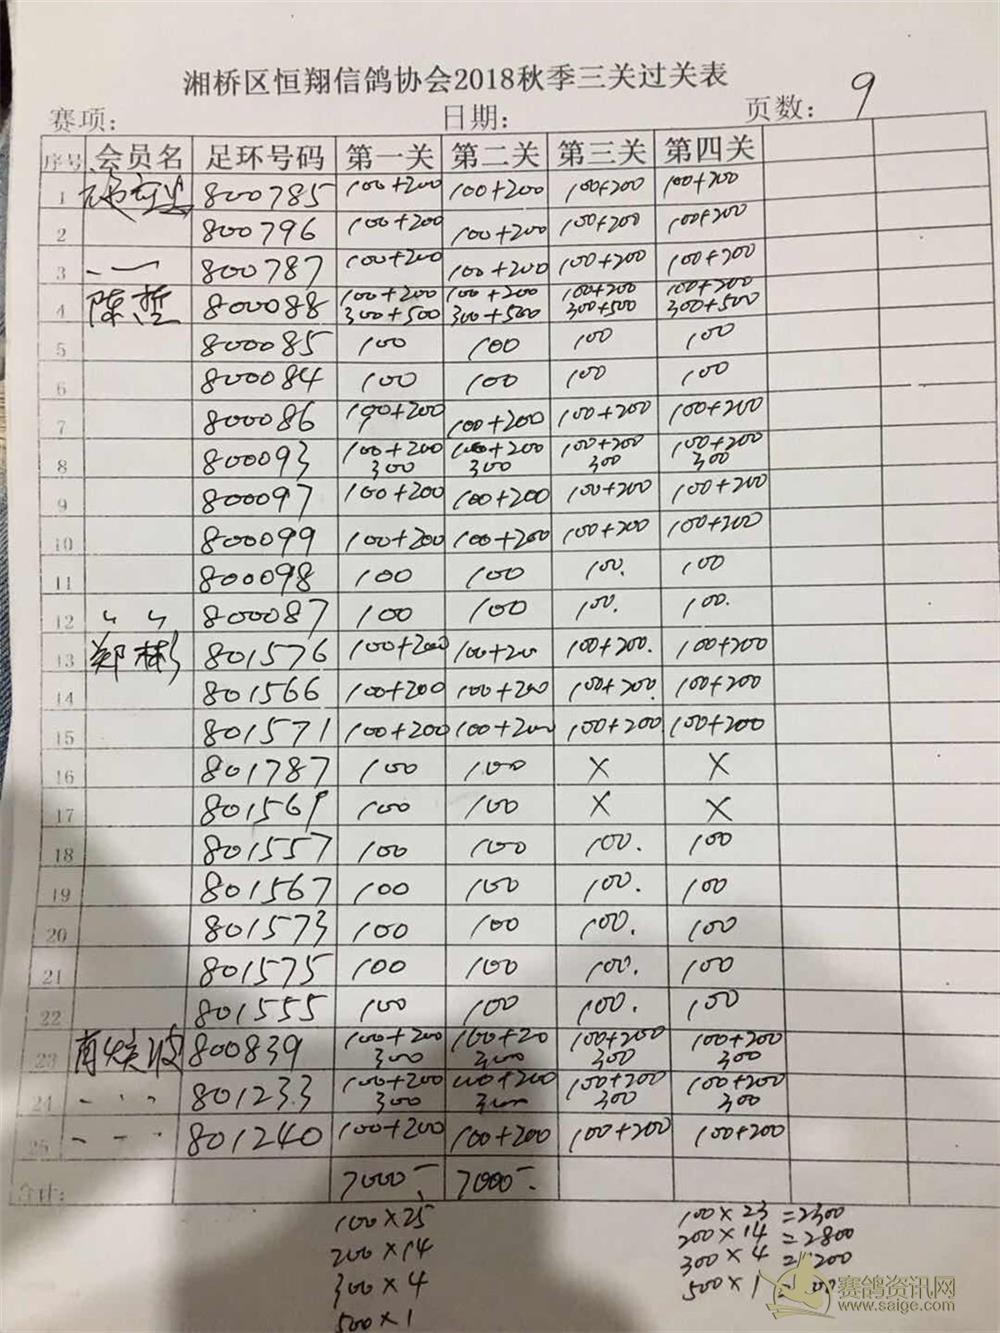 湘桥区恒翔信鸽协会2018秋季三关过关表
赛项: 日期: 页数: 9
序号 会员名 足环号码 第一关 第二关 第三关 第四关
1 800785 100+200 100+200 100+200 100+200
2 800796 100+200 100+200 100+200 100+200
3 800787 100+200 100+200 100+200 100+200
4 陈哲 800088 100+200 100+200 100+200 100+200
300+500 300+500 300+500 300+500
5 800085 100 100 100 100
6 800084 100 100 100 100
7 800086 100+200 100+200 100+200 100+200
8 800093 100+200 100+200 100+200 100+200
300 300 300 300
9 800097 100+200 100+200 100+200 100+200
10 800099 100+200 100+200 100+200 100+200
11 800098 100 100 100. 100
12 〃 800087 100 100 100. 100.
13 郑彬 801576 100+200 100+200 100+200. 100+200
14 801566 100+200 100+200 100+200. 100+200
15 801571 100+200 100+200 100+200 100+200
16 801787 100 100 X X
17 801569 100 100 X X
18 801557 100 100 100. 100
19 801567 100 100 100. 100
20 801573 100 100 100. 100
21 801575 100 100 100. 100
22 801555 100 100 100. 100
23 800839 100+200 100+20 100+200 100+200
300 300 300 300
24 801233 100+200 100+200 100+200 100+200
300 300 300 300
25 801240 100+200 100+200 100+200 100+200
合计: 7000- 7000-
100×25 100×23=2300
200×14 200×14=2800
300×4 300×4=1200
500×1 500×1=
赛鸽资讯网
www.saige.com